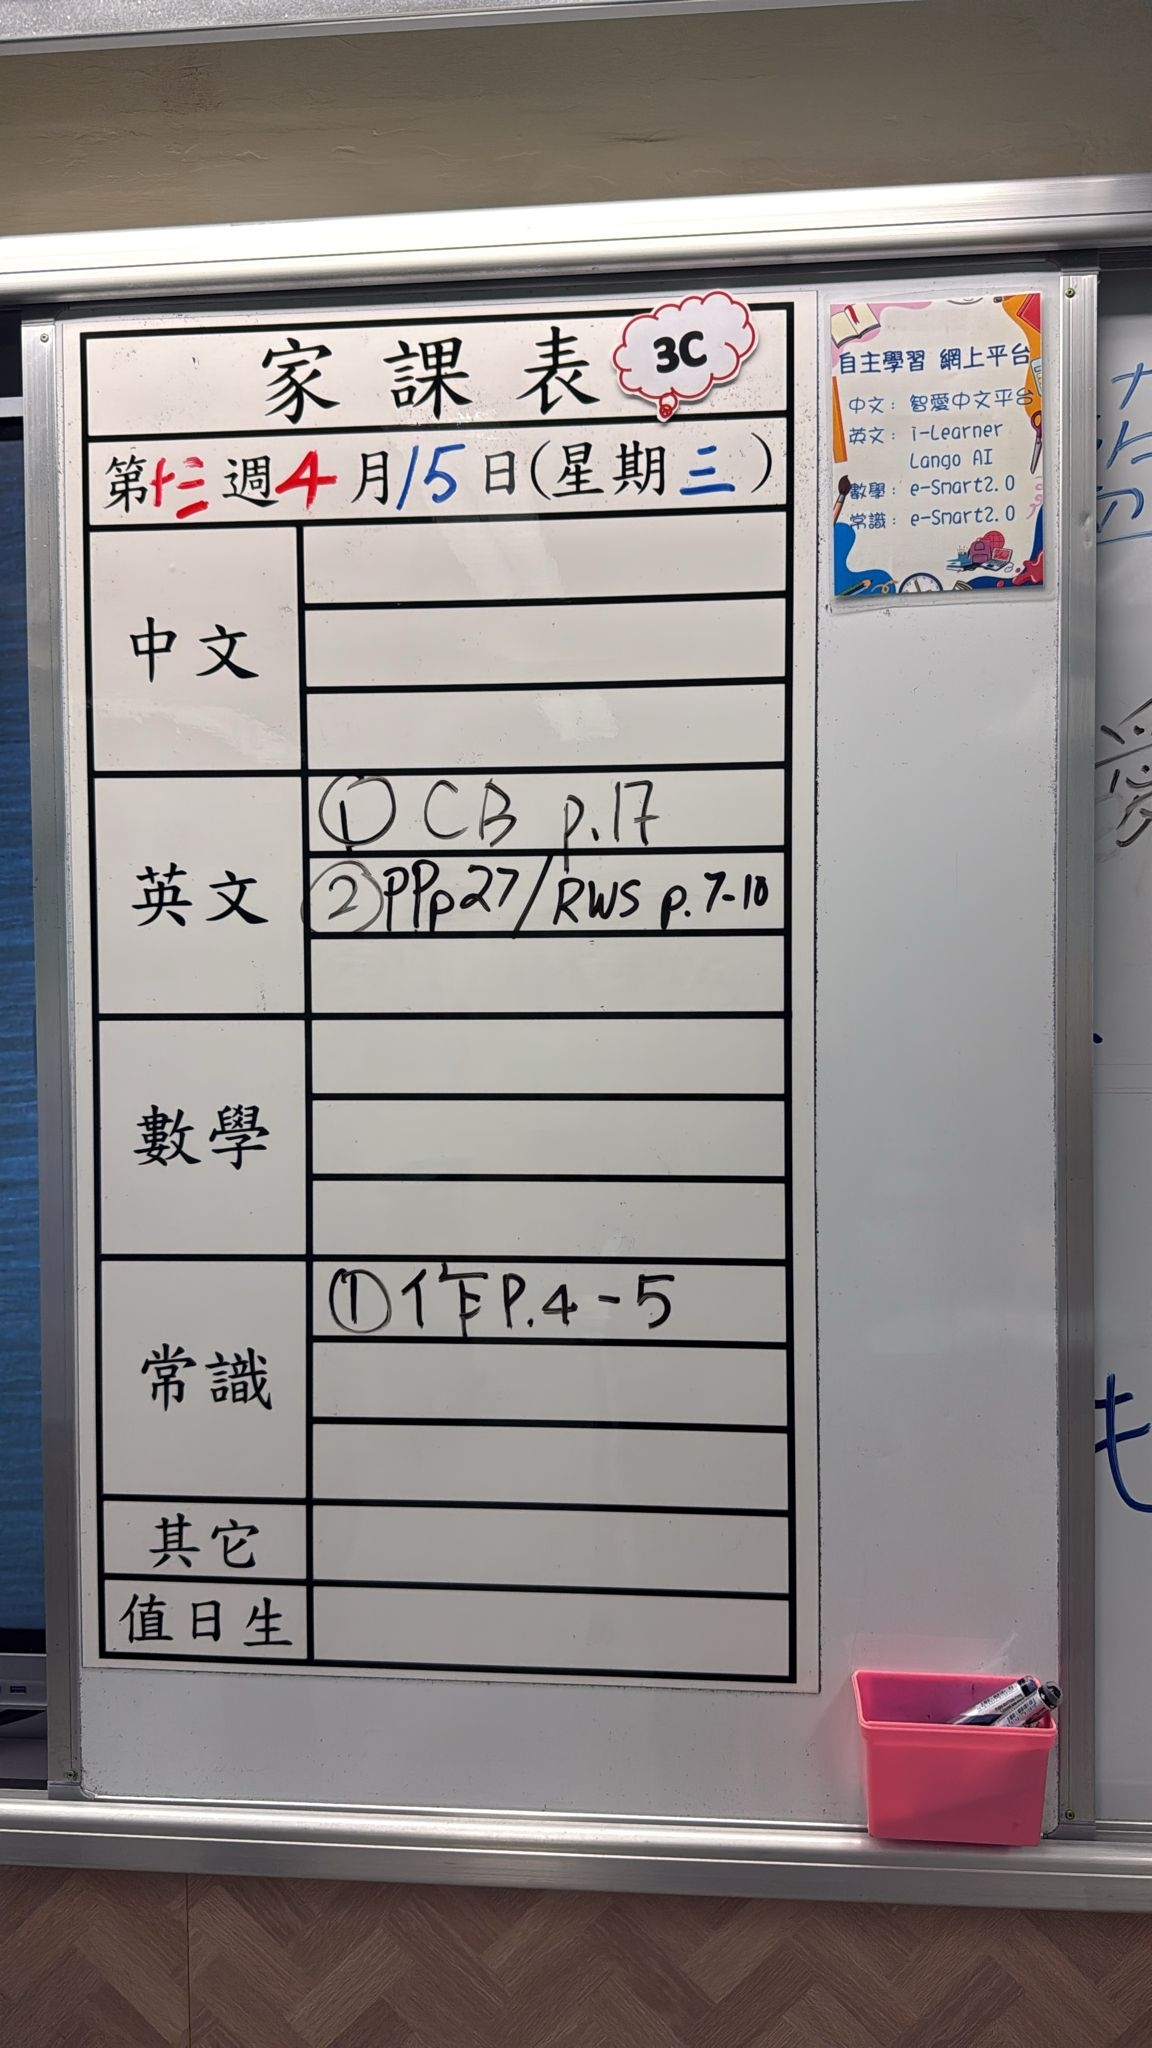 家課表 3C
第十三週4月15日(星期三)
中文
英文
① CB p.17
② PP p27/RWS p.7-10
數學
常識
① 作 P.4-5
其它
值日生
自主學習 網上平台
中文: 智愛中文平台
英文: i-Learner
Lango AI
數學: e-Smart2.0
常識: e-Smart2.0